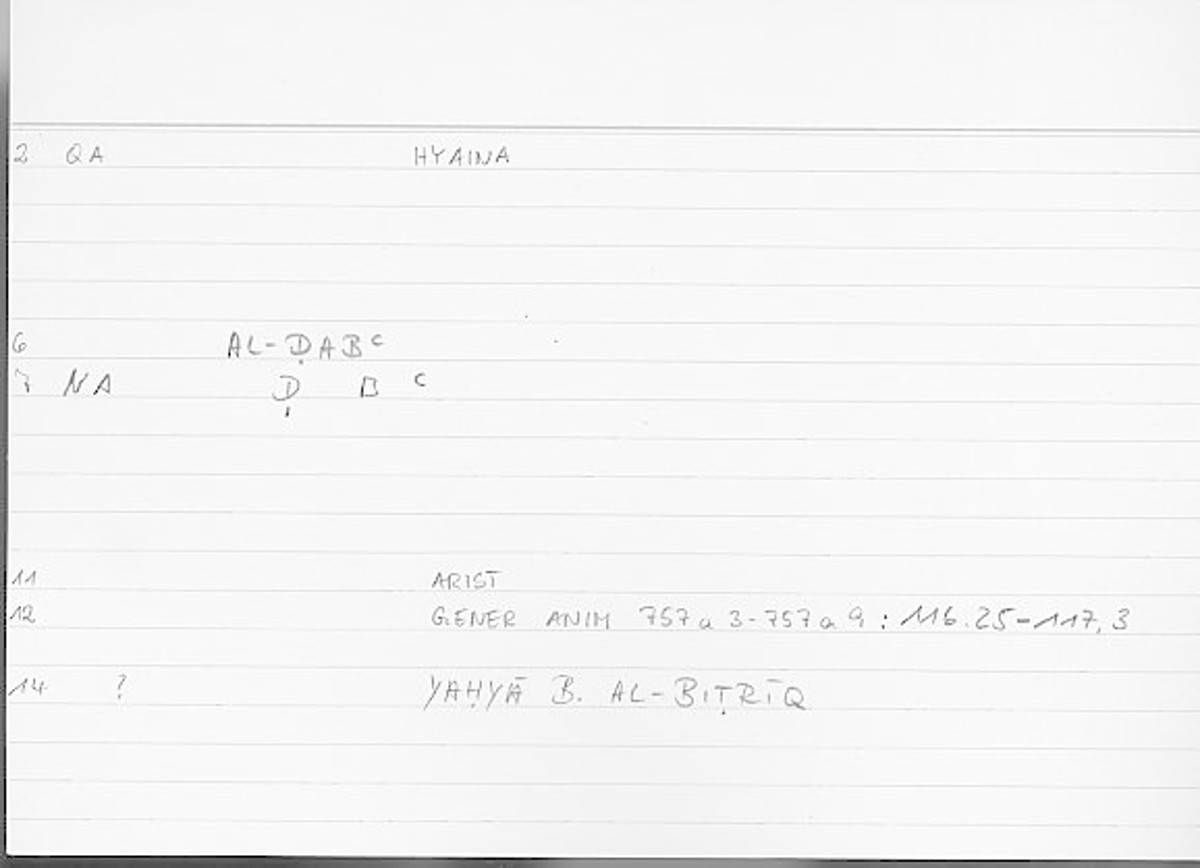 2 QA HYAINA
6 AL-ḌABᶜ
7 NA Ḍ B ᶜ
11 ARIST
12 GENER ANIM 757a 3-757a 9 : 116.25-117,3
14 ? YAḤYĀ B. AL-BIṬRĪQ